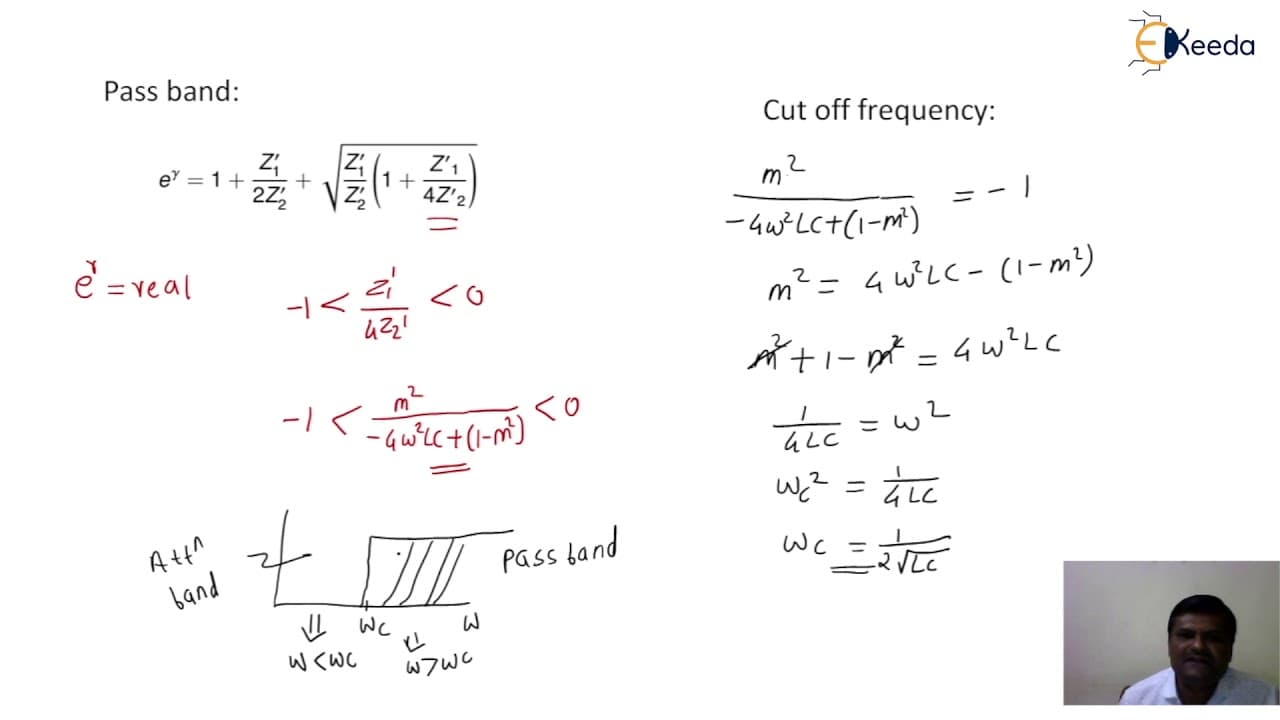 EKeeda
Pass band:
e^γ = 1 + Z'₁/2Z'₂ + √(Z'₁/Z'₂ (1 + Z'₁/4Z'₂))
e^γ = real
-1 < Z₁'/4Z₂' < 0
-1 < m²/(-4w²LC+(1-m²)) < 0
Attⁿ
band
Pass band
wc
w
w<wc
w>wc
Cut off frequency:
m²/(-4w²LC+(1-m²)) = -1
m² = 4w²LC - (1-m²)
m² + 1 - m² = 4w²LC
1/4LC = w²
wc² = 1/4LC
wc = 1/2√LC